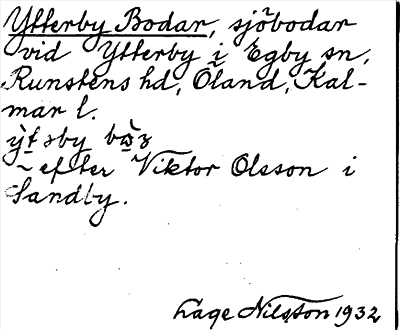 Ytterby Bodar, sjöbodar
vid Ytterby i Egby sn,
Runstens hd, Öland, Kal-
mar l.
efter Viktor Olsson i
Sandby.
Lage Nilsson 1932